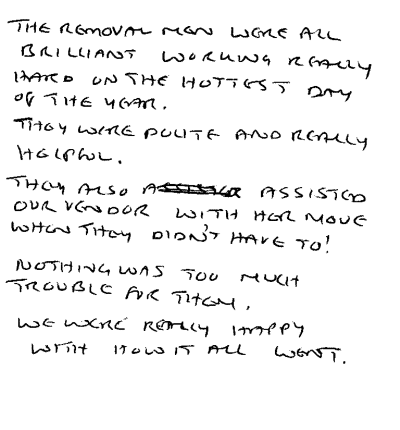 THE REMOVAL MEN WERE ALL
BRILLIANT WORKING REALLY
HARD ON THE HOTTEST DAY
OF THE YEAR.
THEY WERE POLITE AND REALLY
HELPFUL.
THEY ALSO ASSISTED
OUR VENDOR WITH HER MOVE
WHEN THEY DIDN'T HAVE TO!
NOTHING WAS TOO MUCH
TROUBLE FOR THEM.
WE WERE REALLY HAPPY
WITH HOW IT ALL WENT.